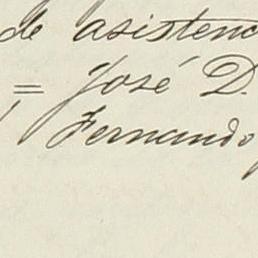 de asistenc
= José D.
Fernando